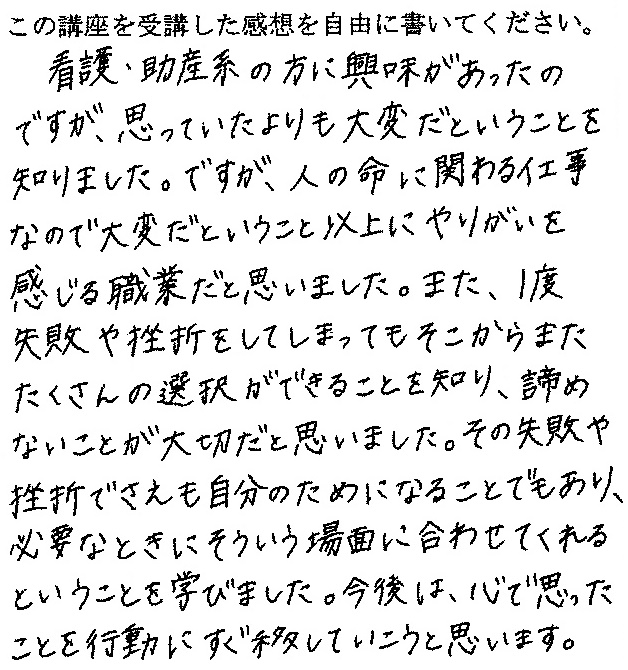 この講座を受講した感想を自由に書いてください。
看護・助産系の方に興味があったの
ですが、思っていたよりも大変だということを
知りました。ですが、人の命に関わる仕事
なので大変だということ以上にやりがいを
感じる職業だと思いました。また、1度
失敗や挫折をしてしまってもそこからまた
たくさんの選択ができることを知り、諦め
ないことが大切だと思いました。その失敗や
挫折でさえも自分のためになることでもあり、
必要なときにそういう場面に合わせてくれる
ということを学びました。今後は、心で思った
ことを行動にすぐ移していこうと思います。